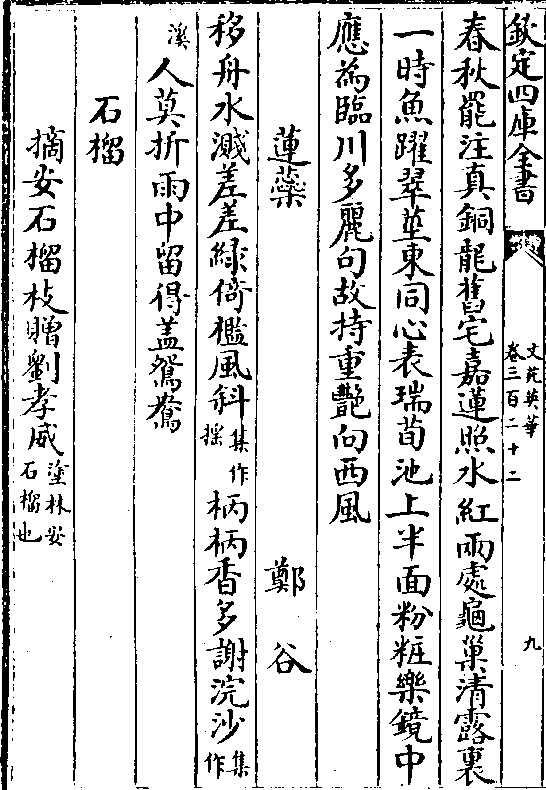 欽定四庫全書
文苑英華
卷三百二十二
九
春秋罷注真銅龍舊宅嘉蓮照水紅兩處龜巢清露裏
一時魚躍翠莖東同心表瑞荀池上半面粉粧樂鏡中
應為臨川多麗句故持重艷向西風
蓮蘂 鄭谷
移舟水濺差差緑倚檻風斜集作摇柄柄香多謝浣沙集作
溪人莫折雨中留得盖鴛鴦
石榴
摘安石榴枝贈劉孝威塗林安石榴也